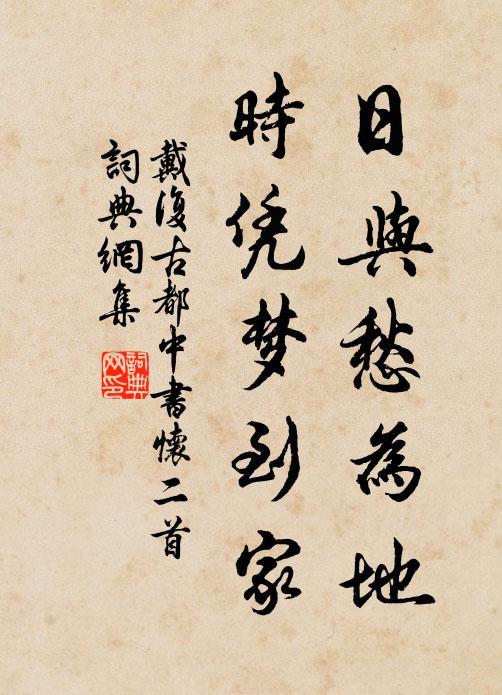 日與愁為地
時凭梦到家
戴復古都中書懷二首
詞典網集
詞典网印